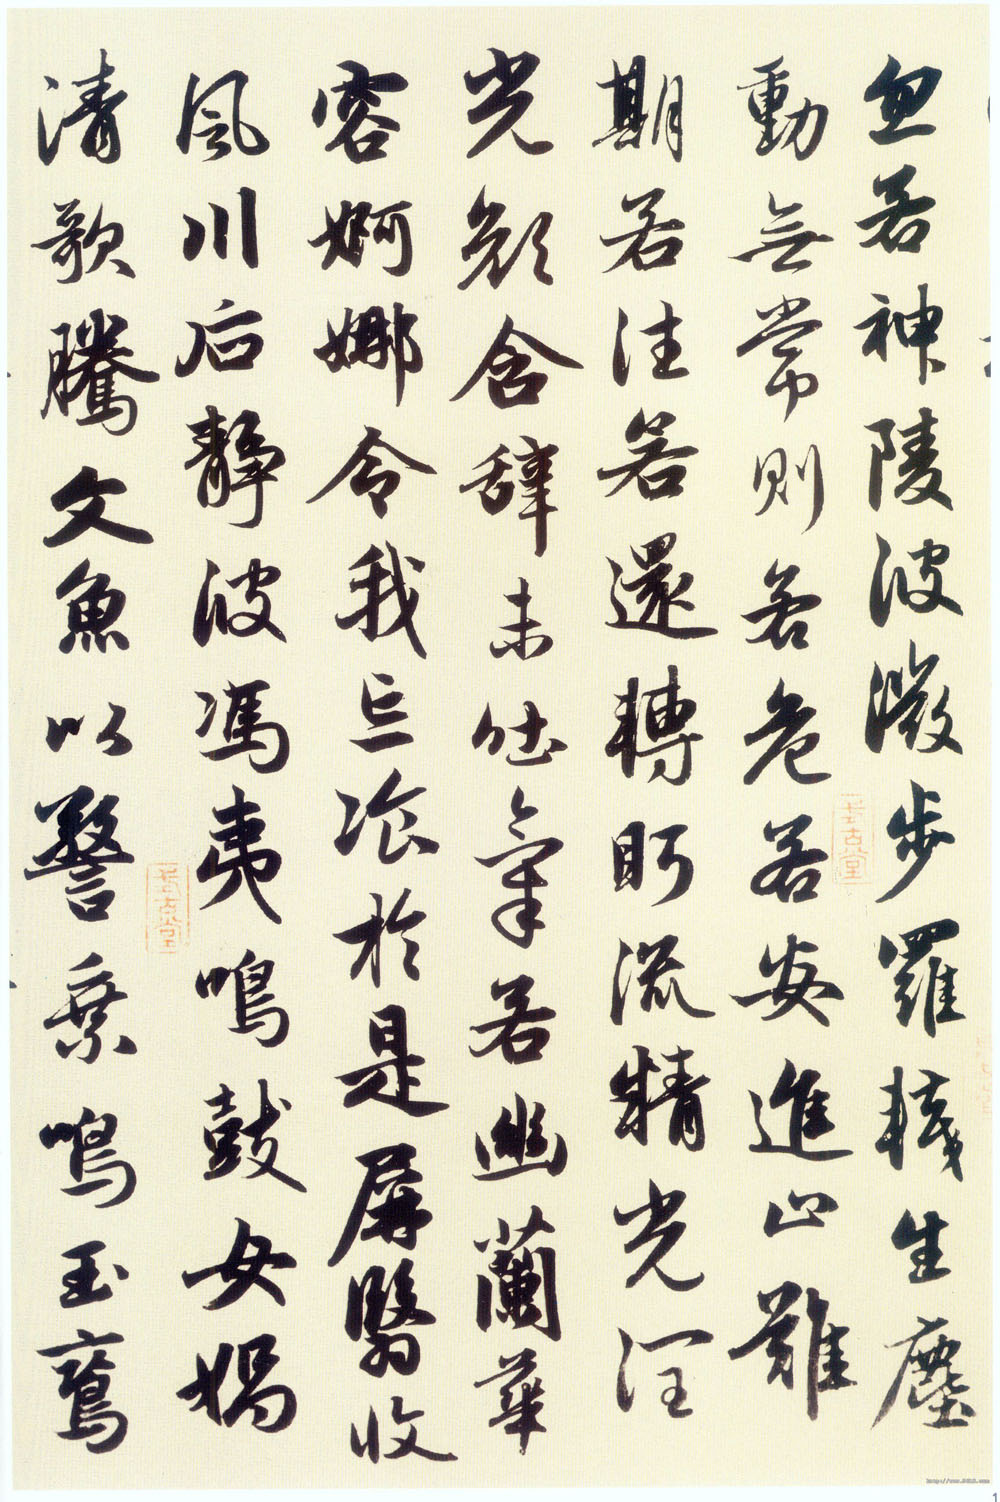 忽若神陵波微步羅韈生塵
動無常則若危若安進止難
期若往若還轉眄流精光潤
光顏含辭未吐氣若幽蘭華
容婀娜令我忘飡於是屏翳收
風川后靜波馮夷鳴鼓女媧
清歌騰文魚以警乗鳴玉鸞
1